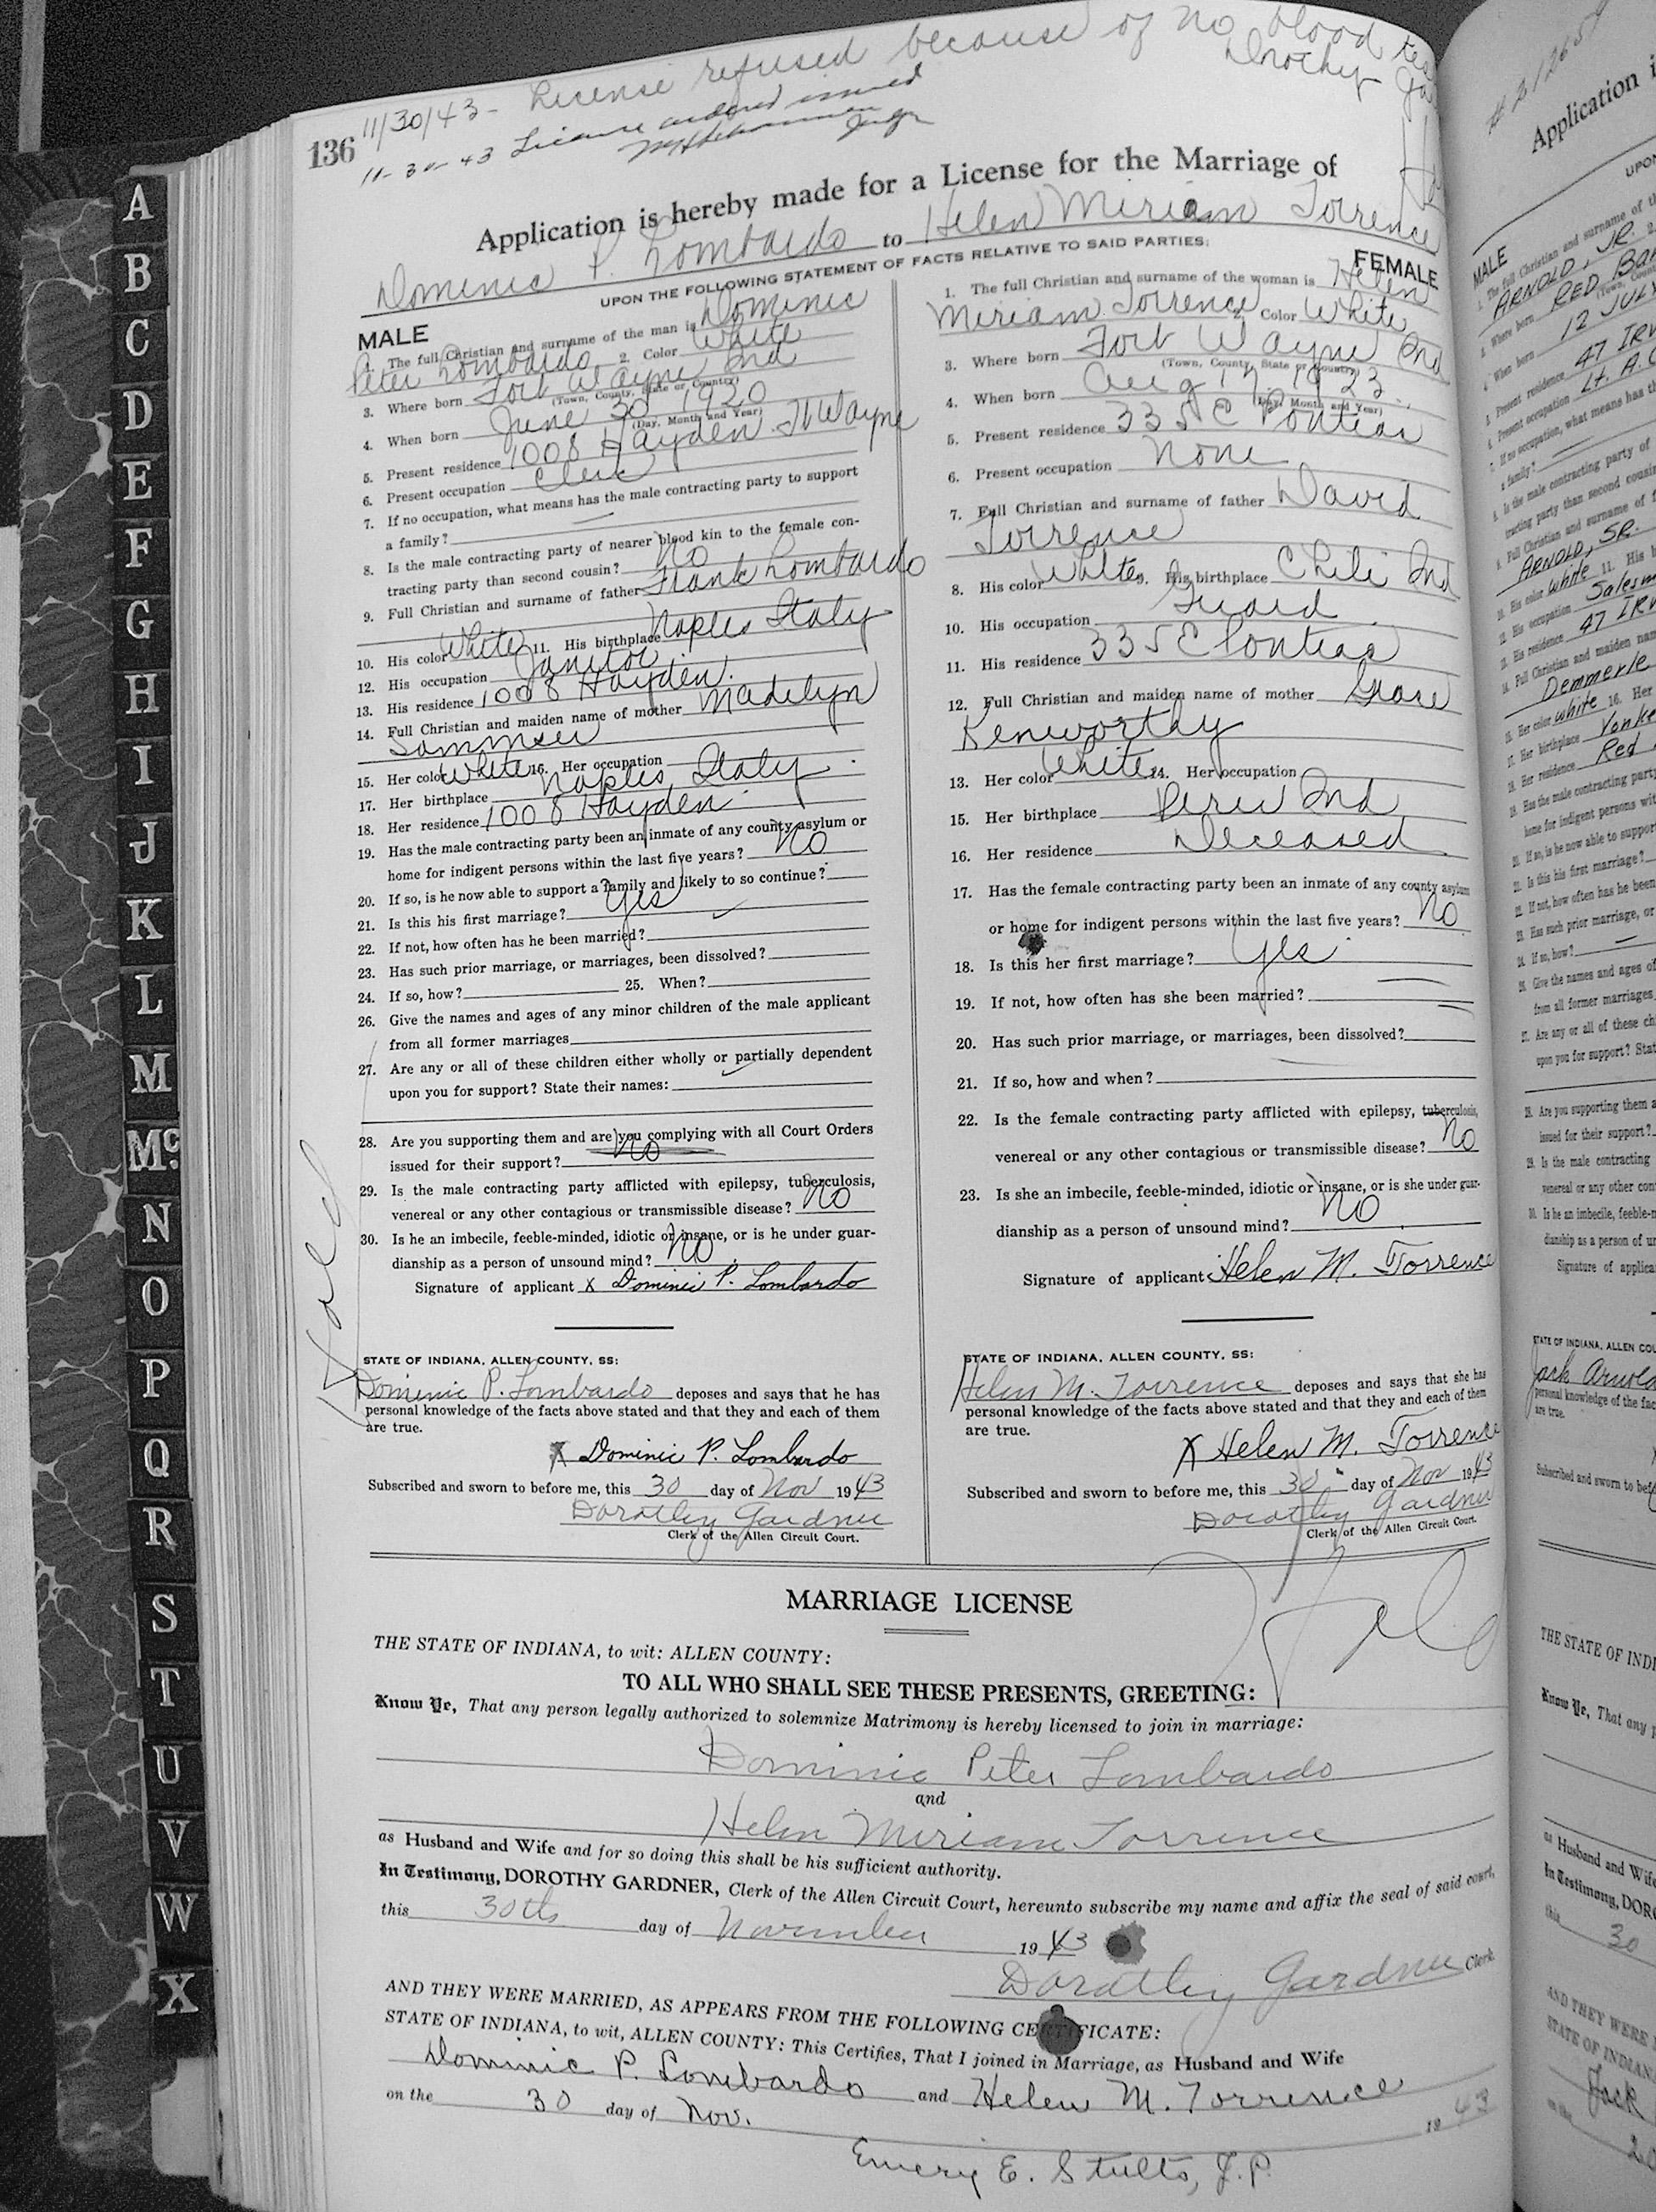 11/30/43 - License refused because of no blood
Dorothy
136
11-30-43 License ordered issued
Judge
Application is hereby made for a License for the Marriage of
Dominic P. Lombardo to Helen Miriam Torrence
UPON THE FOLLOWING STATEMENT OF FACTS RELATIVE TO SAID PARTIES:
MALE
1. The full Christian and surname of the man is Dominic
Peter Lombardo 2. Color White
3. Where born Fort Wayne Ind
(Town, County, State or Country)
4. When born June 30 1920
(Day, Month and Year)
5. Present residence 1008 Hayden Ft Wayne
6. Present occupation Clerk
7. If no occupation, what means has the male contracting party to support
a family?
8. Is the male contracting party of nearer blood kin to the female con-
tracting party than second cousin? No
9. Full Christian and surname of father Frank Lombardo
10. His color White 11. His birthplace Naples Italy
12. His occupation Janitor
13. His residence 1008 Hayden
14. Full Christian and maiden name of mother Madelyn
Sommser
15. Her color White 16. Her occupation
17. Her birthplace Naples, Italy
18. Her residence 1008 Hayden
19. Has the male contracting party been an inmate of any county asylum or
home for indigent persons within the last five years? No
20. If so, is he now able to support a family and likely to so continue?
21. Is this his first marriage? Yes
22. If not, how often has he been married?
23. Has such prior marriage, or marriages, been dissolved?
24. If so, how? 25. When?
26. Give the names and ages of any minor children of the male applicant
from all former marriages
27. Are any or all of these children either wholly or partially dependent
upon you for support? State their names:
28. Are you supporting them and are you complying with all Court Orders
issued for their support? No
29. Is the male contracting party afflicted with epilepsy, tuberculosis,
venereal or any other contagious or transmissible disease? No
30. Is he an imbecile, feeble-minded, idiotic or insane, or is he under guar-
dianship as a person of unsound mind? No
Signature of applicant x Dominic P. Lombardo
STATE OF INDIANA, ALLEN COUNTY, SS:
Dominic P. Lombardo deposes and says that he has
personal knowledge of the facts above stated and that they and each of them
are true.
X Dominic P. Lombardo
Subscribed and sworn to before me, this 30 day of Nov 1943
Dorothy Gardner
Clerk of the Allen Circuit Court.
FEMALE
1. The full Christian and surname of the woman is Helen
Miriam Torrence 2. Color White
3. Where born Fort Wayne Ind
(Town, County, State or Country)
4. When born Aug 17 1923
(Day, Month and Year)
5. Present residence 335 E Pontiac
6. Present occupation None
7. Full Christian and surname of father David
Torrence
8. His color White 9. His birthplace Chili Ind
10. His occupation Guard
11. His residence 335 E Pontiac
12. Full Christian and maiden name of mother Grace
Kenworthy
13. Her color White 14. Her occupation
15. Her birthplace Peru Ind
16. Her residence Deceased
17. Has the female contracting party been an inmate of any county asylum
or home for indigent persons within the last five years? No
18. Is this her first marriage? Yes
19. If not, how often has she been married?
20. Has such prior marriage, or marriages, been dissolved?
21. If so, how and when?
22. Is the female contracting party afflicted with epilepsy, tuberculosis,
venereal or any other contagious or transmissible disease? No
23. Is she an imbecile, feeble-minded, idiotic or insane, or is she under guar-
dianship as a person of unsound mind? No
Signature of applicant Helen M. Torrence
STATE OF INDIANA, ALLEN COUNTY, SS:
Helen M. Torrence deposes and says that she has
personal knowledge of the facts above stated and that they and each of them
are true.
X Helen M. Torrence
Subscribed and sworn to before me, this 30 day of Nov 1943
Dorothy Gardner
Clerk of the Allen Circuit Court.
MARRIAGE LICENSE
THE STATE OF INDIANA, to wit: ALLEN COUNTY:
TO ALL WHO SHALL SEE THESE PRESENTS, GREETING:
Know Ye, That any person legally authorized to solemnize Matrimony is hereby licensed to join in marriage:
Dominic Peter Lombardo
and
Helen Miriam Torrence
as Husband and Wife and for so doing this shall be his sufficient authority.
In Testimony, DOROTHY GARDNER, Clerk of the Allen Circuit Court, hereunto subscribe my name and affix the seal of said court,
this 30th day of November 1943
Dorothy Gardner Clerk
AND THEY WERE MARRIED, AS APPEARS FROM THE FOLLOWING CERTIFICATE:
STATE OF INDIANA, to wit, ALLEN COUNTY: This Certifies, That I joined in Marriage, as Husband and Wife
Dominic P. Lombardo and Helen M. Torrence
on the 30 day of Nov. 1943
Emery E. Stults, J.P.
A
B
C
D
E
F
G
H
I
J
K
L
M
Mc
N
O
P
Q
R
S
T
U
V
W
X